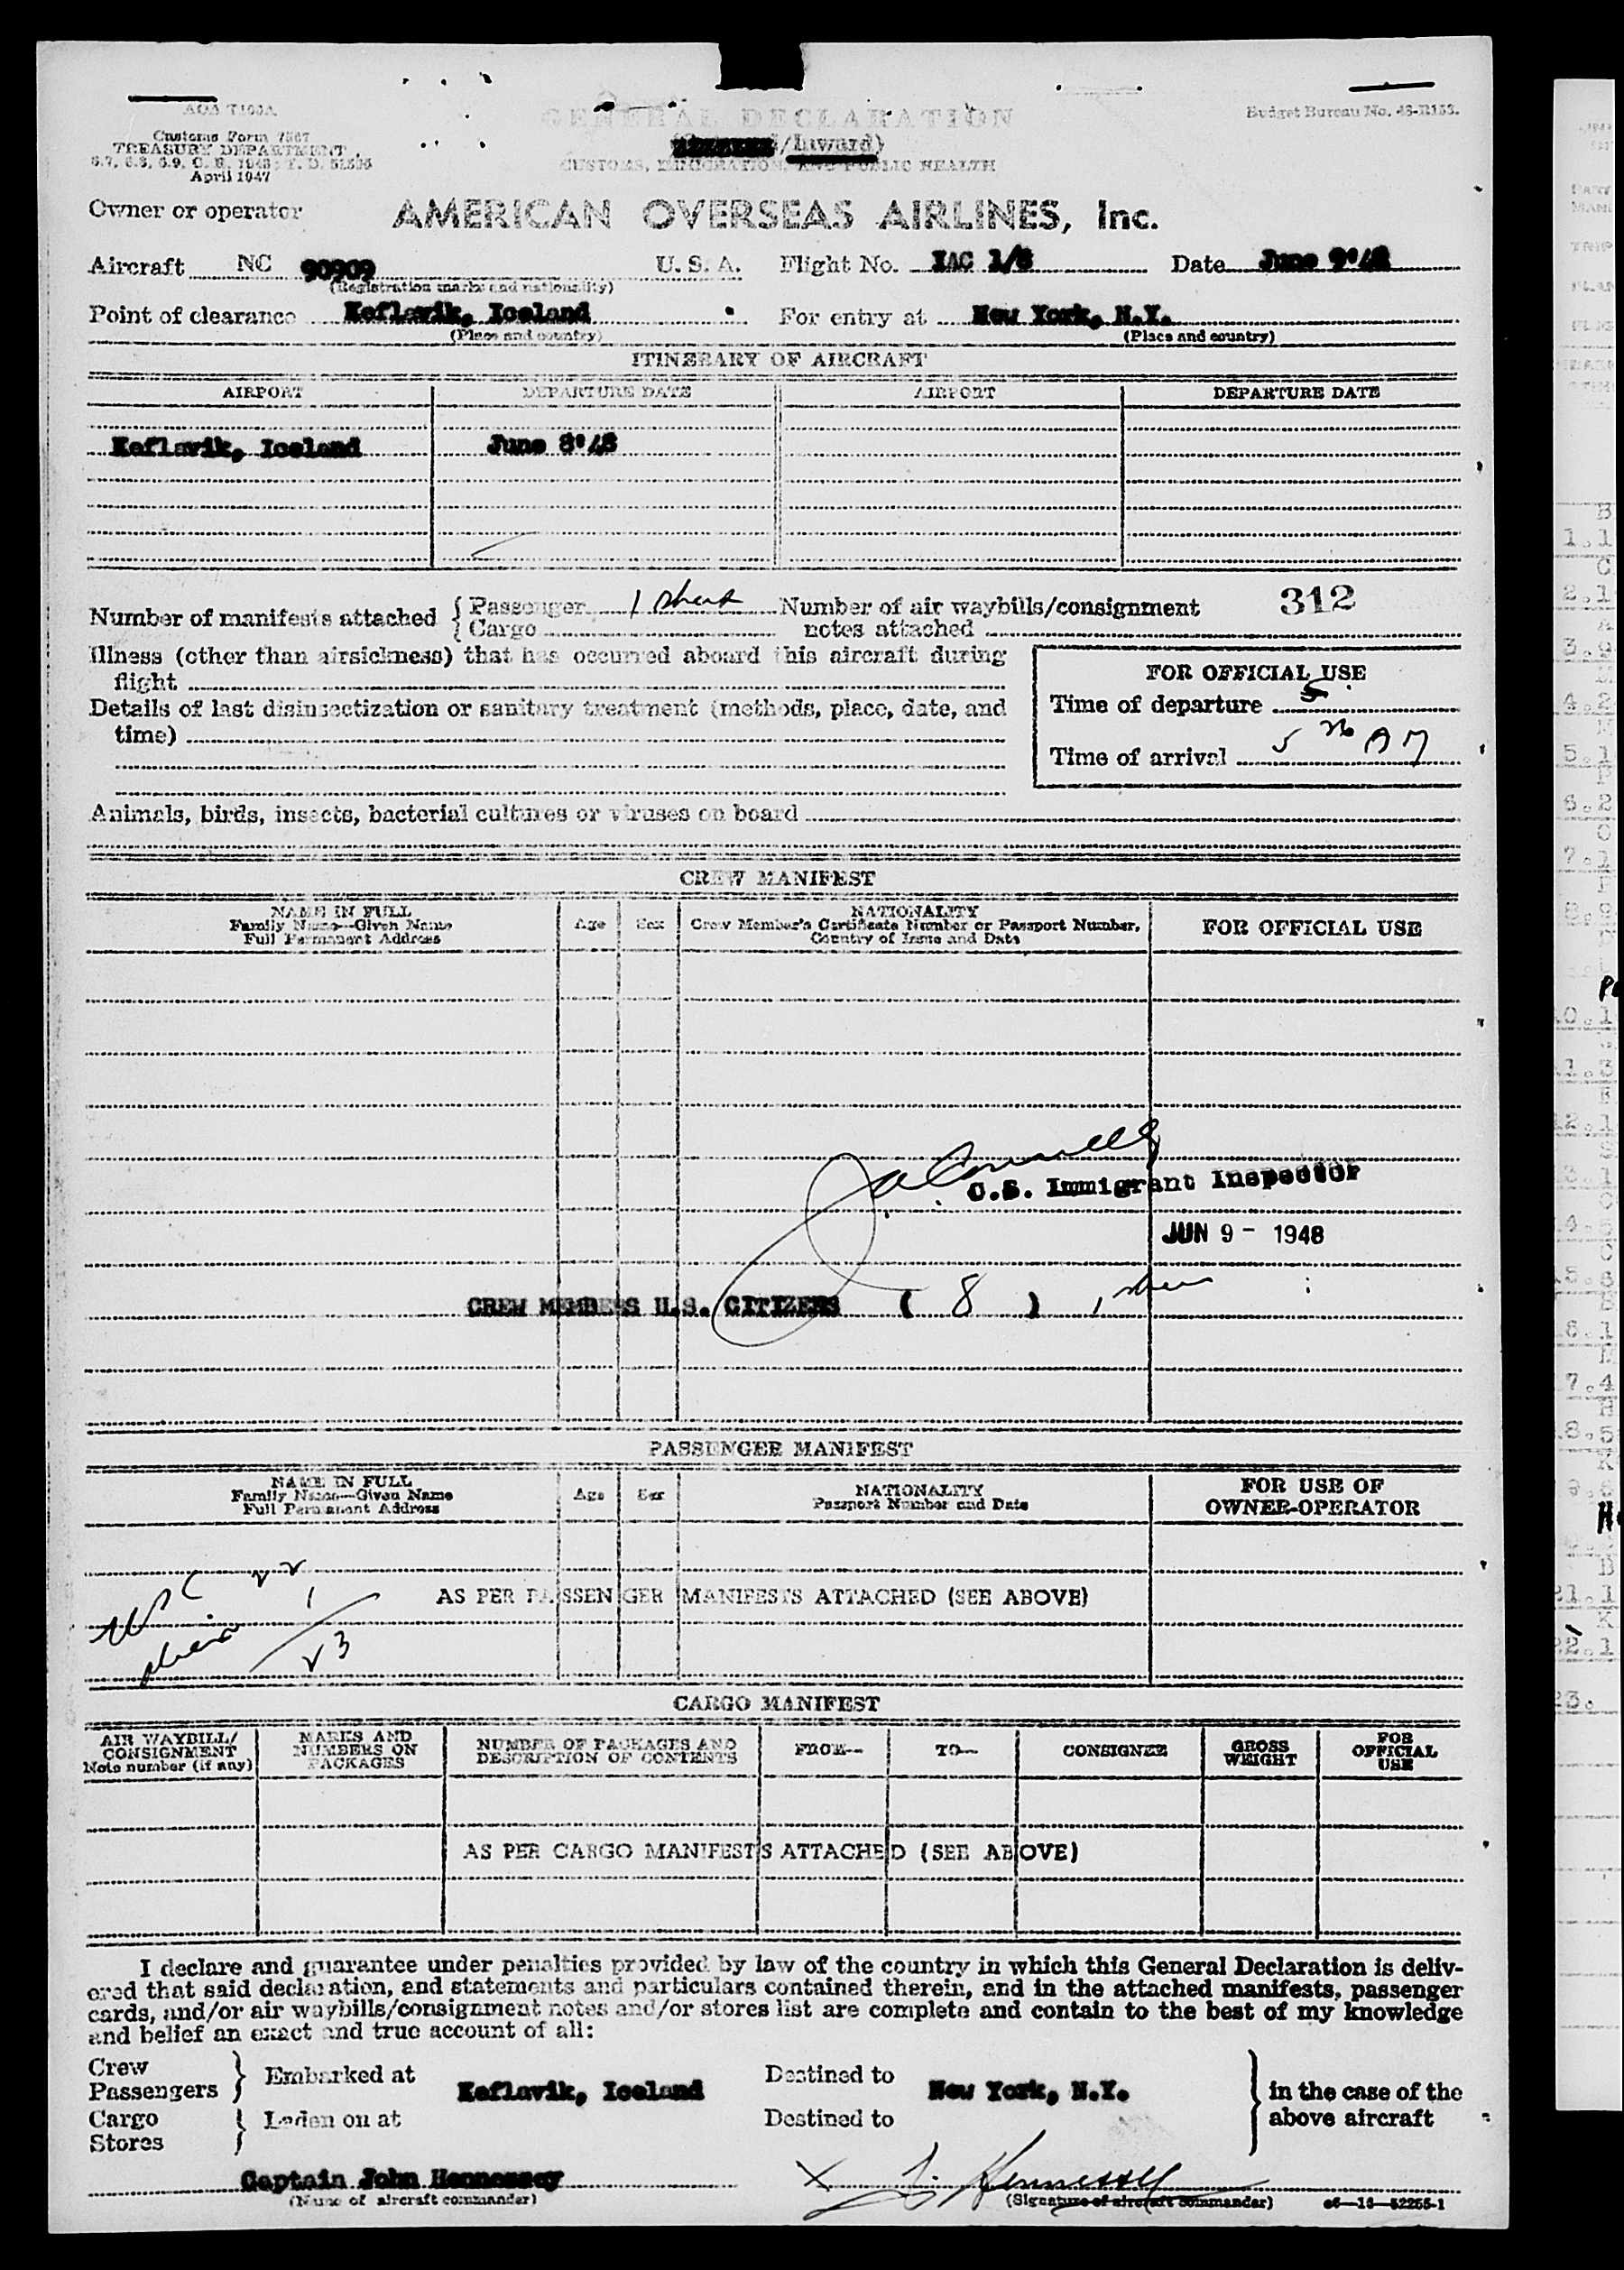 AOA T100A
Customs Form 7507
TREASURY DEPARTMENT
April 1947
GENERAL DECLARATION
/Inward)
CUSTOMS, IMMIGRATION, AND PUBLIC HEALTH
Budget Bureau No. 48-R153.
Owner or operator AMERICAN OVERSEAS AIRLINES, Inc.
Aircraft NC 90909 U. S. A. Flight No. IAC 1/8 Date June 9'48
(Registration marks and nationality)
Point of clearance Keflavik, Iceland For entry at New York, N.Y.
(Place and country) (Place and country)
ITINERARY OF AIRCRAFT
AIRPORT DEPARTURE DATE AIRPORT DEPARTURE DATE
Keflavik, Iceland June 8'48
Number of manifests attached { Passenger 1 sheet Number of air waybills/consignment 312
{ Cargo notes attached
Illness (other than airsickness) that has occurred aboard this aircraft during
flight
Details of last disinsectization or sanitary treatment (methods, place, date, and
time)
FOR OFFICIAL USE
Time of departure
Time of arrival 5 AM
Animals, birds, insects, bacterial cultures or viruses on board
CREW MANIFEST
NAME IN FULL
Family Name—Given Name
Full Permanent Address
Age Sex
NATIONALITY
Crew Member's Certificate Number or Passport Number,
Country of Issue and Date
FOR OFFICIAL USE
U.S. Immigrant Inspector
JUN 9 - 1948
CREW MEMBERS U.S. CITIZENS ( 8 )
PASSENGER MANIFEST
NAME IN FULL
Family Name—Given Name
Full Permanent Address
Age Sex
NATIONALITY
Passport Number and Date
FOR USE OF
OWNER-OPERATOR
AS PER PASSENGER MANIFESTS ATTACHED (SEE ABOVE)
CARGO MANIFEST
AIR WAYBILL/
CONSIGNMENT
Note number (if any)
MARKS AND
NUMBERS ON
PACKAGES
NUMBER OF PACKAGES AND
DESCRIPTION OF CONTENTS
FROM—
TO—
CONSIGNEE
GROSS
WEIGHT
FOR
OFFICIAL
USE
AS PER CARGO MANIFESTS ATTACHED (SEE ABOVE)
I declare and guarantee under penalties provided by law of the country in which this General Declaration is deliv-
ered that said declaration, and statements and particulars contained therein, and in the attached manifests, passenger
cards, and/or air waybills/consignment notes and/or stores list are complete and contain to the best of my knowledge
and belief an exact and true account of all:
Crew
Passengers } Embarked at Keflavik, Iceland Destined to New York, N.Y. in the case of the
Cargo } Laden on at Destined to above aircraft
Stores
Captain John Hennessey J. Hennessey
(Name of aircraft commander) (Signature of aircraft commander) c6—16—52255-1